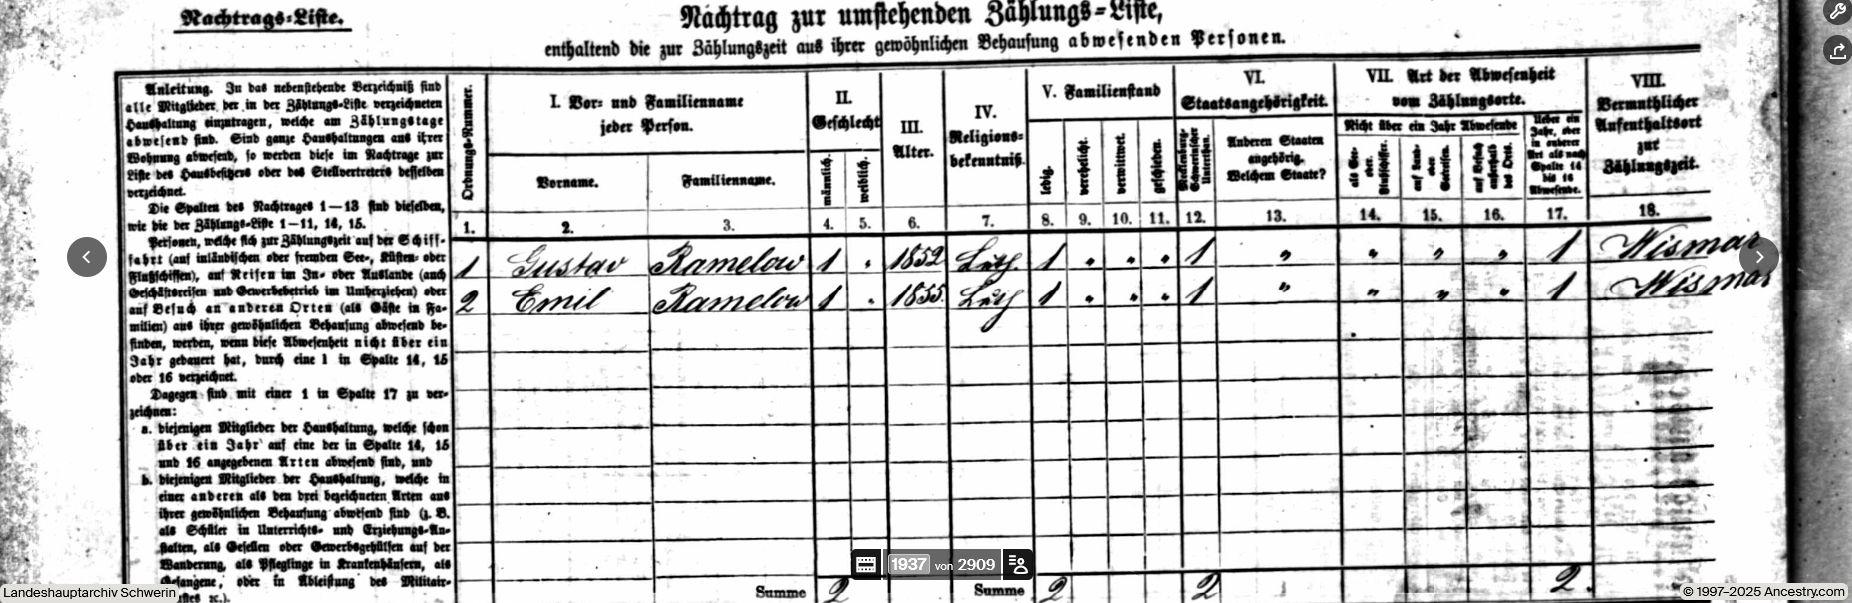 Nachtrags-Liste.
Nachtrag zur umstehenden Zählungs-Liste,
enthaltend die zur Zählungszeit aus ihrer gewöhnlichen Behausung abwesenden Personen.
Anleitung. In das nebenstehende Verzeichniß sind
alle Mitglieder der in der Zählungs-Liste verzeichneten
Haushaltung einzutragen, welche am Zählungstage
abwesend sind. Sind ganze Haushaltungen aus ihrer
Wohnung abwesend, so werden diese im Nachtrage zur
Liste des Hausbesitzers oder des Stellvertreters desselben
verzeichnet.
Die Spalten des Nachtrages 1—13 sind dieselben,
wie die der Zählungs-Liste 1—11, 14, 15.
Personen, welche sich zur Zählungszeit auf der Schiff-
fahrt (auf inländischen oder fremden See-, Küsten- oder
Flußschiffen), auf Reisen im In- oder Auslande (auch
Geschäftsreisen und Gewerbebetrieb im Umherziehen) oder
auf Besuch an anderen Orten (als Gäste in Fa-
milien) aus ihrer gewöhnlichen Behausung abwesend be-
finden, werden, wenn diese Abwesenheit nicht über ein
Jahr gedauert hat, durch eine 1 in Spalte 14, 15
oder 16 verzeichnet.
Dagegen sind mit einer 1 in Spalte 17 zu ver-
zeichnen:
a. diejenigen Mitglieder der Haushaltung, welche schon
über ein Jahr auf eine der in Spalte 14, 15
und 16 angegebenen Arten abwesend sind, und
b. diejenigen Mitglieder der Haushaltung, welche in
einer anderen als den drei bezeichneten Arten aus
ihrer gewöhnlichen Behausung abwesend sind (z. B.
als Schüler in Unterrichts- und Erziehungs-An-
stalten, als Gesellen oder Gewerbsgehülfen auf der
Wanderung, als Pfleglinge in Krankenhäusern, als
Gefangene, oder in Ableistung des Militair-
Ordnungs-Nummer.
I. Vor- und Familienname
jeder Person.
Vorname.
Familienname.
II.
Geschlecht
männlich.
weiblich.
III.
Alter.
IV.
Religions-
bekenntniß.
V. Familienstand
ledig.
verehelicht.
verwittwet.
geschieden.
VI.
Staatsangehörigkeit.
Mecklenburg-
Schwerinscher
Unterthan.
Anderen Staaten
angehörig.
Welchem Staate?
VII. Art der Abwesenheit
vom Zählungsorte.
Nicht über ein Jahr Abwesende
als See-
oder
Flußschiffer.
auf Land-
oder
Seereisen.
auf Besuch
außerhalb
des Orts.
Ueber ein
Jahr, oder
in anderer
Art als nach
Spalte 14
bis 16
Abwesende.
VIII.
Vermuthlicher
Aufenthaltsort
zur
Zählungszeit.
1. 2. 3. 4. 5. 6. 7. 8. 9. 10. 11. 12. 13. 14. 15. 16. 17. 18.
1 Gustav Ramelow 1 " 1852 Luth. 1 " " " 1 " " " " 1 Wismar
2 Emil Ramelow 1 " 1855. Luth 1 " " " 1 " " " " 1 Wismar
Summe 2 Summe 2 2 2.
1937 von 2909
Landeshauptarchiv Schwerin
© 1997–2025 Ancestry.com